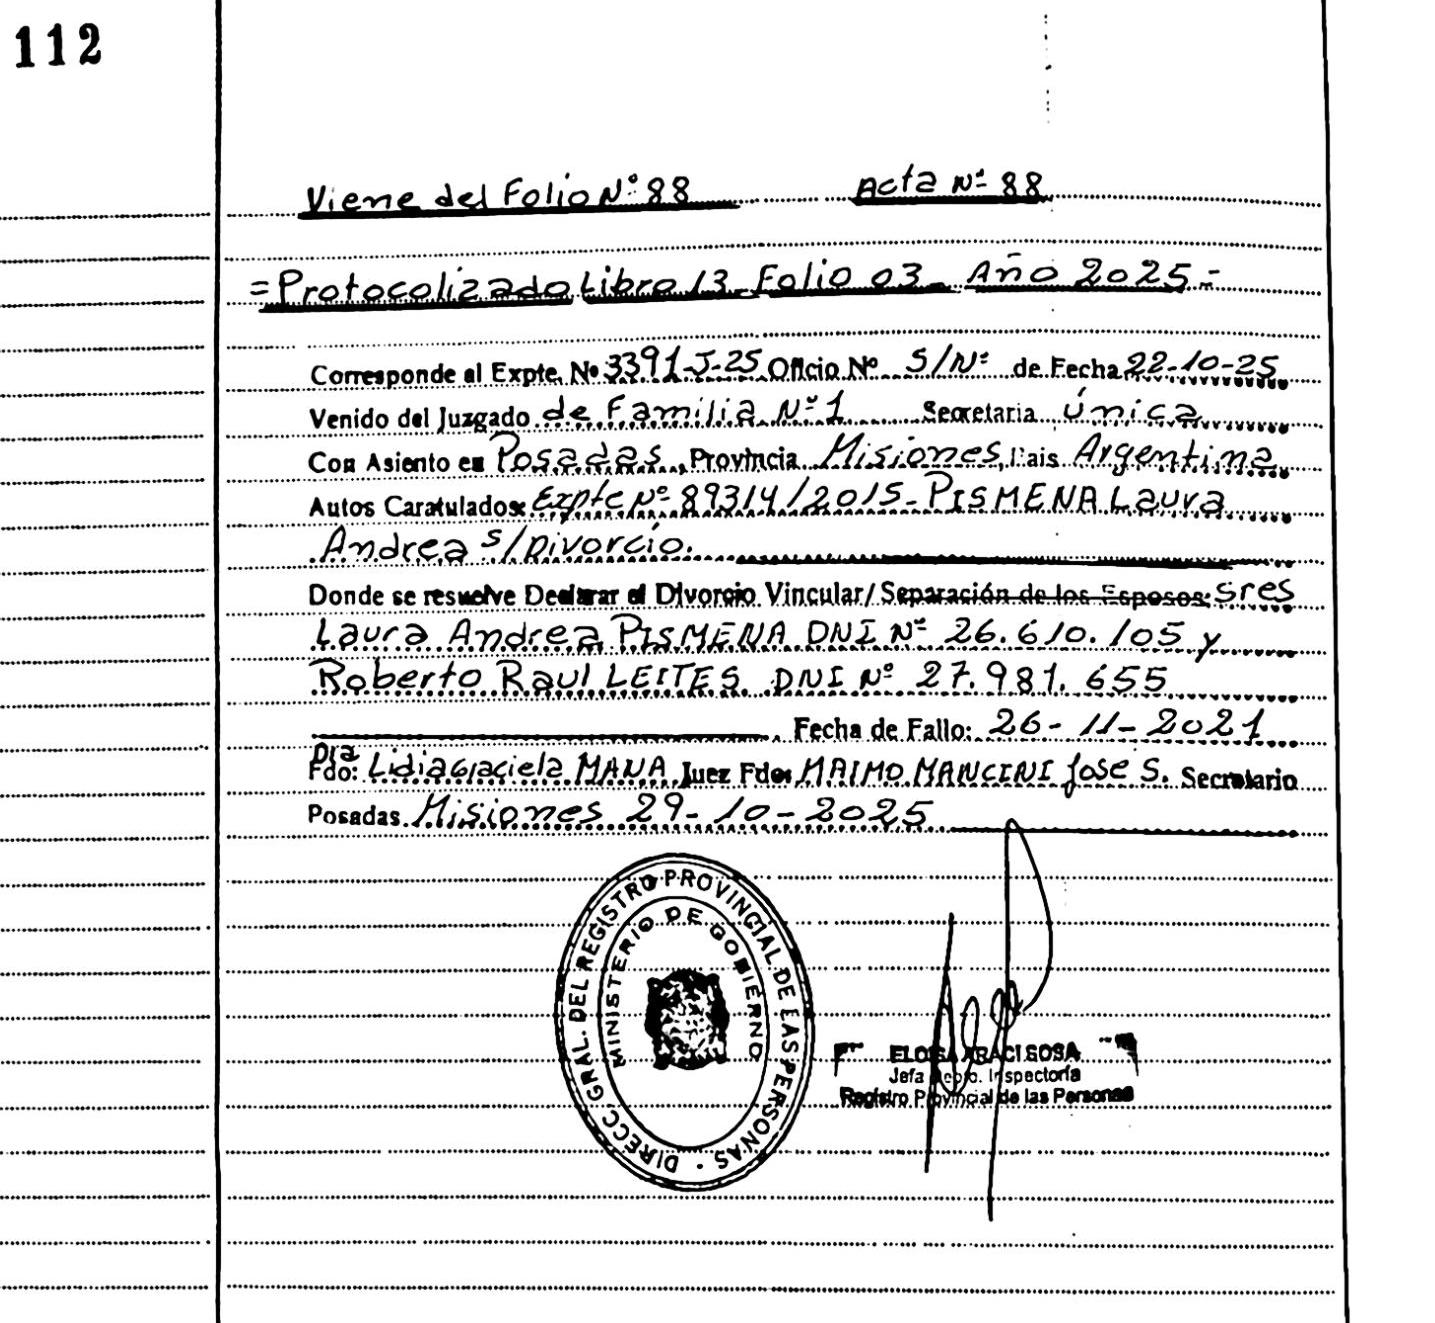 112
Viene del Folio Nº 88 Acta Nº 88
= Protocolizado Libro 13 - Folio 03 - Año 2025 -=
Corresponde al Expte. Nº 3391-J-25 Oficio Nº S/Nº de Fecha 22-10-25
Venido del Juzgado de Familia Nº 1 Secretaria Única
Con Asiento en Posadas, Provincia Misiones, Pais Argentina
Autos Caratulados: Expte Nº 89314/2015 - PISMENA Laura
Andrea s/Divorcio.
Donde se resuelve Declarar el Divorcio Vincular/ Separación de los Esposos: Sres
Laura Andrea PISMENA DNI Nº 26.610.105 y
Roberto Raul LEITES DNI Nº 27.981.655
Fecha de Fallo: 26-11-2021
Dra
Fdo: Lidia Graciela MANA Juez Fdo: MAIMO MANCINI Jose S. Secretario
Posadas Misiones 29-10-2025
DIRECC. GRAL. DEL REGISTRO PROVINCIAL DE LAS PERSONAS
MINISTERIO DE GOBIERNO
ELOISA ARACI SOSA
Jefa Depto. Inspectoría
Registro Provincial de las Personas